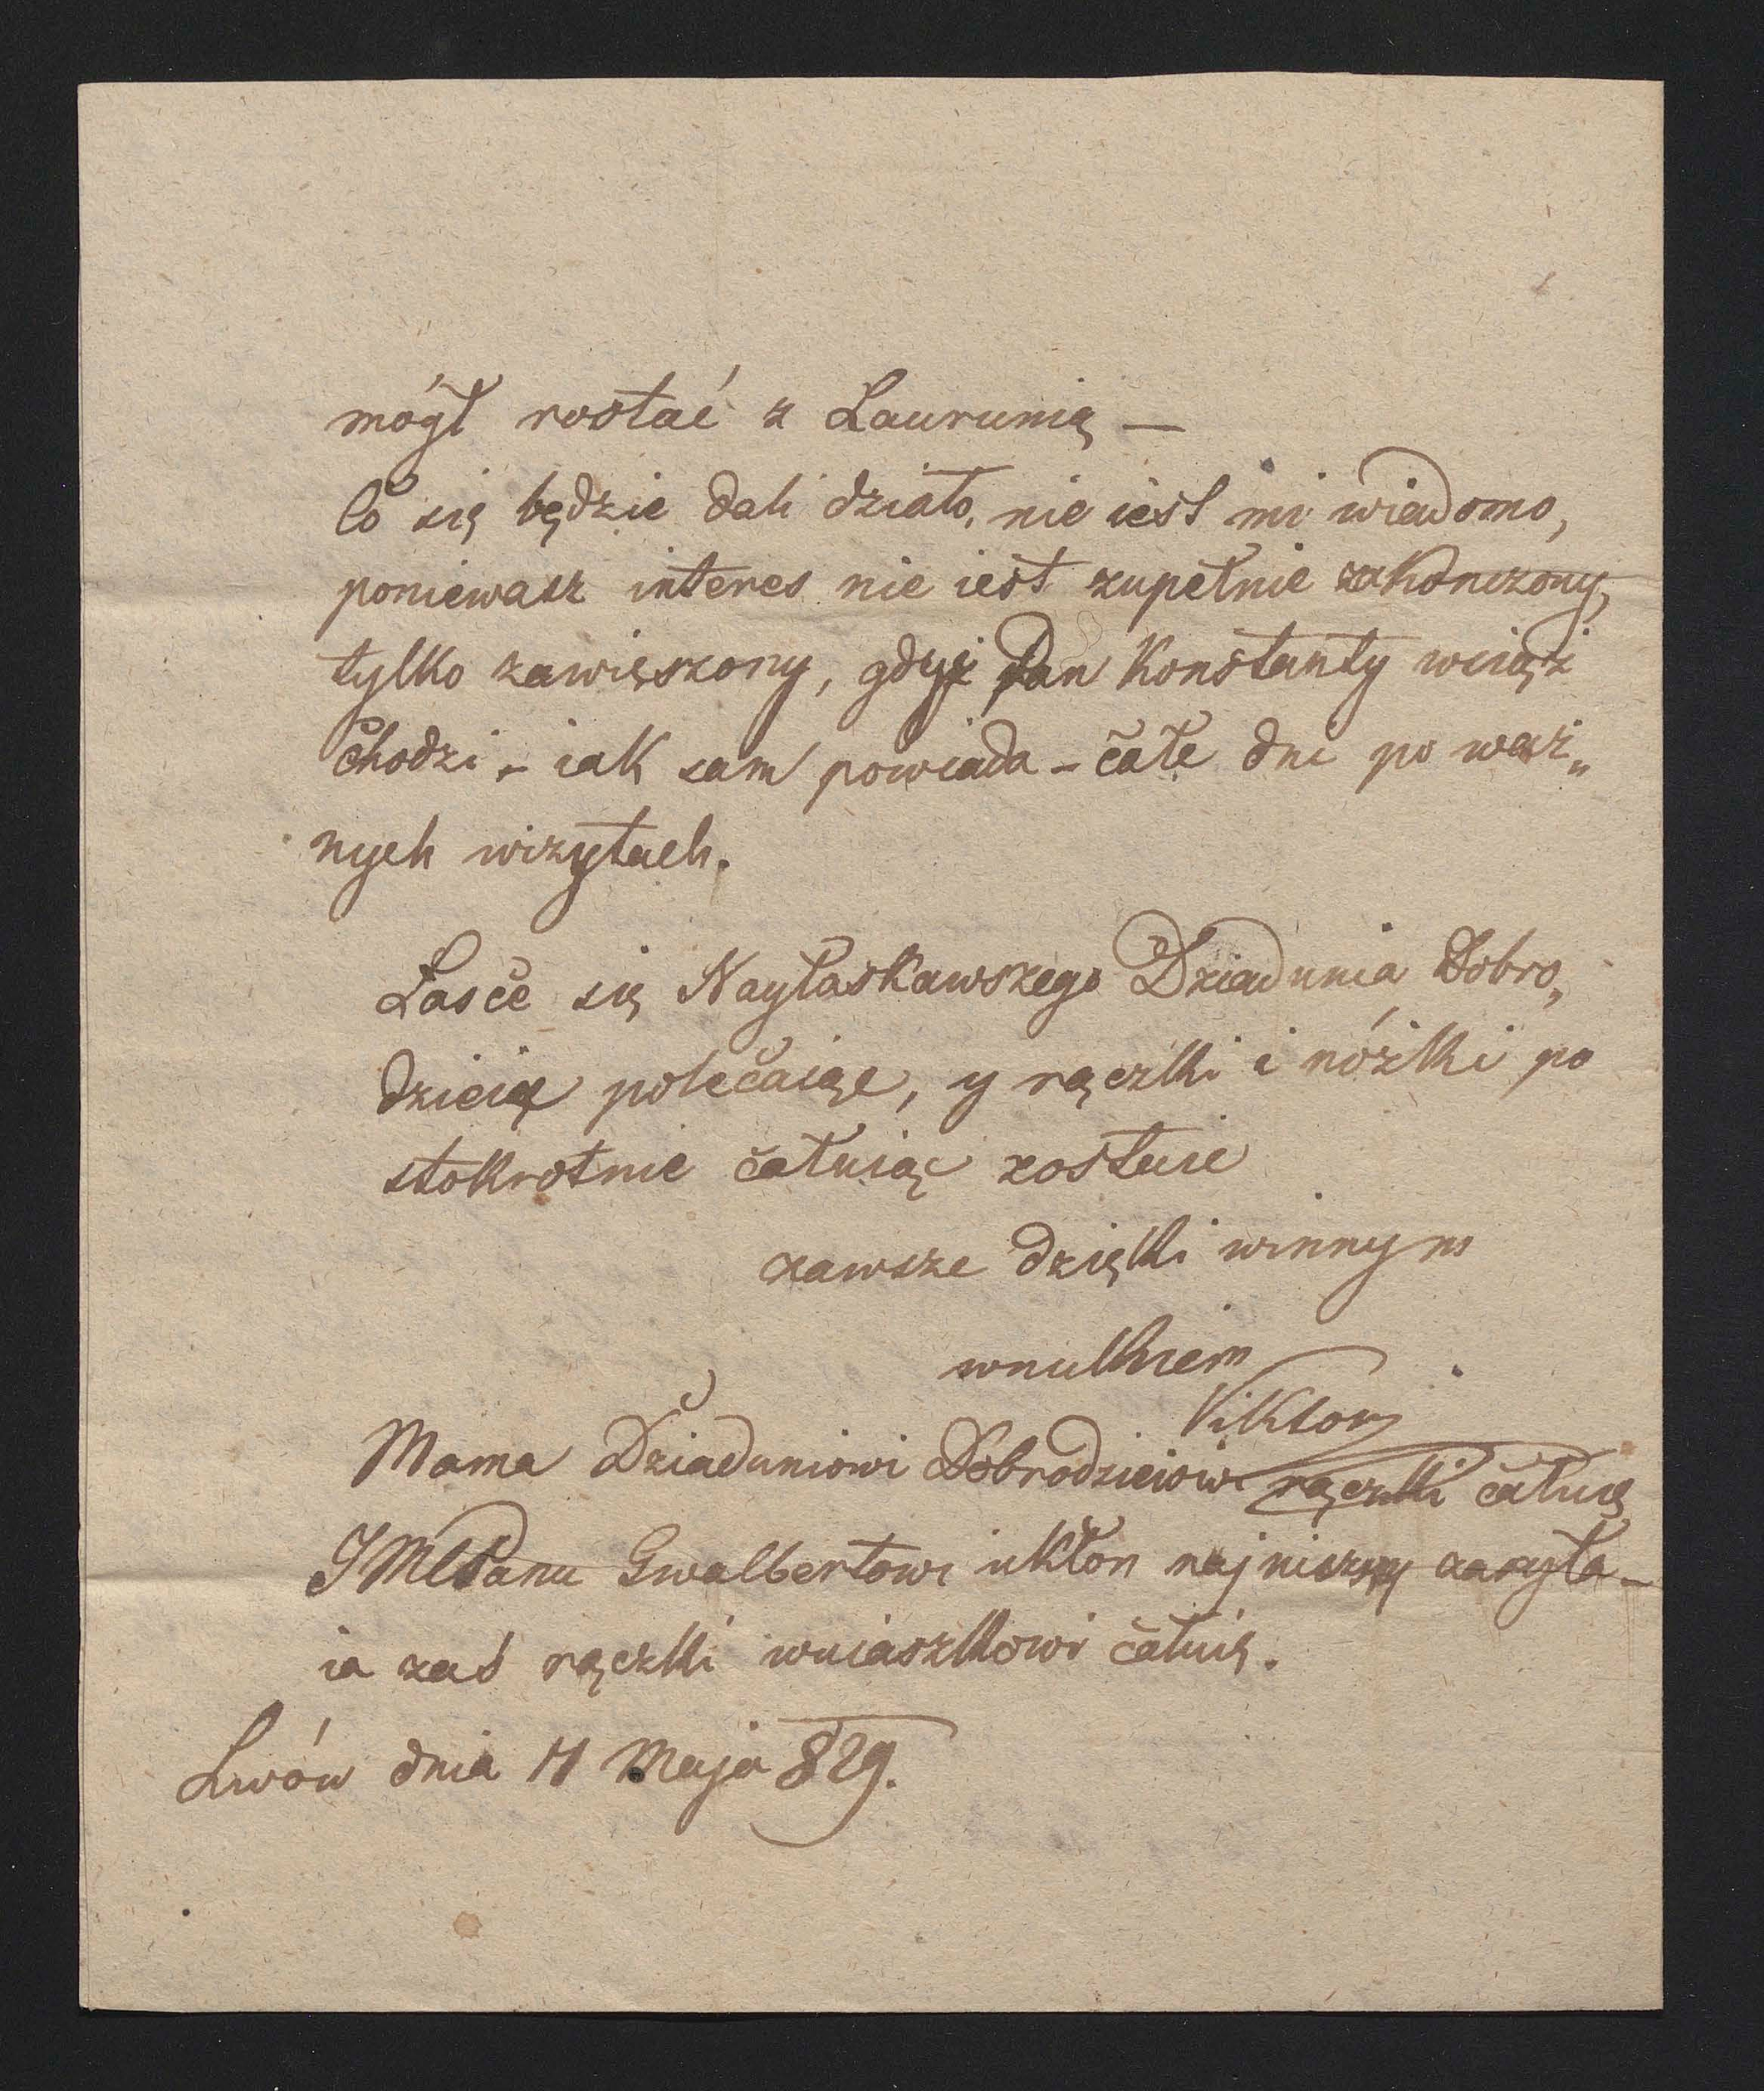 mógł rostać z Laurunią —
Co się będzie dali działo, nie iest mi wiadomo,
poniewasz interes nie iest zupełnie zakonczony,
tylko zawięszony, gdyż Pan Konstanty wciąż
chodzi – iak sam powiada – całe dni po waż„
nych wizytach.
Łasce się Nayłaskawszego Dziadunia Dobro„
dzieia polecaiąc, y rączki i nóżki po
stokrotnie całuiąc zostaie
zawsze dzięki winnym
wnukiem
Viktor
Mama Dziaduniowi Dobrodzieiowi rączki całuie
JMCPanu Gwalbertowi ukłon najniższy zasyła –
ia zaś rączki wuiaszkowi całuię.
Lwów dnia 11 Maja 829.